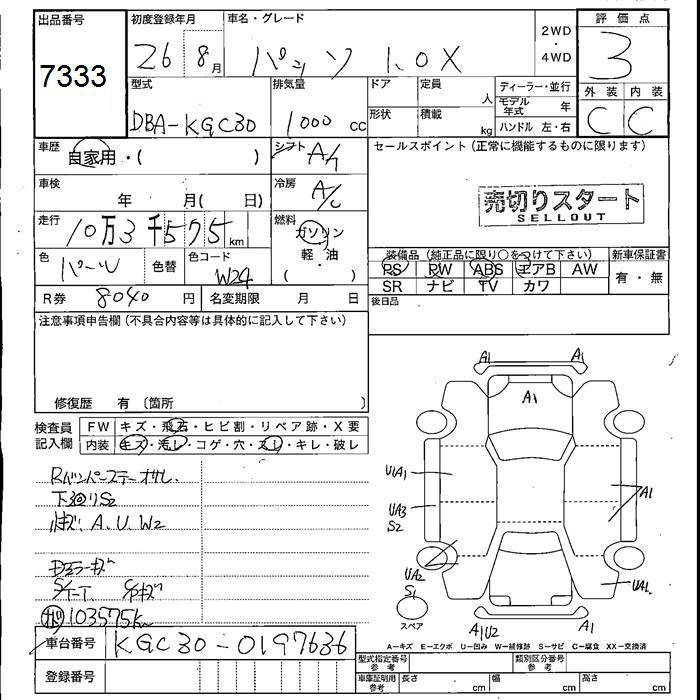 出品番号
7333
初度登録年月
26 8月
車名・グレード
パッソ 1.0X
2WD
・
4WD
評価点
3
外装 内装
C C
型式
DBA-KGC30
排気量
1000 cc
ドア
定員
人
形状
積載
kg
ディーラー・並行
モデル年式 年
ハンドル 左・右
車歴
自家用・( )
シフト
A/
セールスポイント (正常に機能するものに限ります)
売切りスタート
SELLOUT
車検
年 月( 日)
冷房
A/C
走行
10万3千575km
燃料
ガソリン
軽・油
( )
色
パール
色替
色コード
W24
装備品 (純正品に限り○をつけて下さい)
PS PW ABS エアB AW
SR ナビ TV カワ
新車保証書
有・無
R券 8040 円
名変期限 月 日
後日品
注意事項申告欄 (不具合内容等は具体的に記入して下さい)
修復歴 有 〔箇所 〕
検査員
記入欄
FW キズ・飛石・ヒビ割・リペア跡・X要
内装 キズ・汚レ・コゲ・穴・スレ・キレ・破レ
下廻りS2
A.U.W2
103575km
A1 A1
A1
U1A1
UA3
S2
A1
UA2
S1
UA1
スペア
A1U2
A1
A=キズ E=エクボ U=凹み W=補修跡 S=サビ C=腐食 XX=交換済
車台番号 KGC30-0197636
登録番号
型式指定番号
参考
類別区分番号
参考
車庫証明用
参考
長さ cm
幅 cm
高さ cm